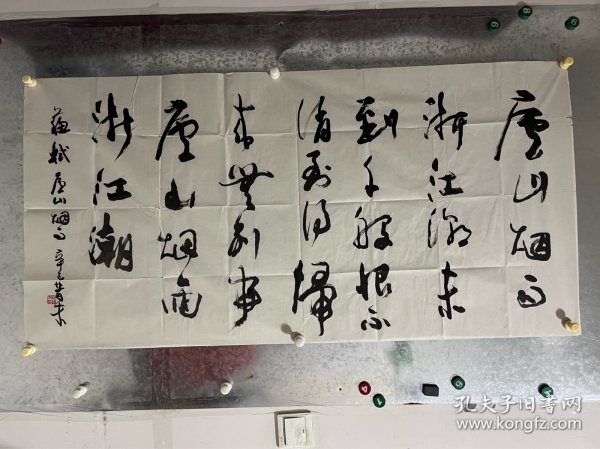 廬山烟雨
浙江潮未
到千般恨不
消到得歸
来無别事
廬山烟雨
浙江潮
蘇軾庐山烟雨
孔夫子旧书网
www.kongfz.com